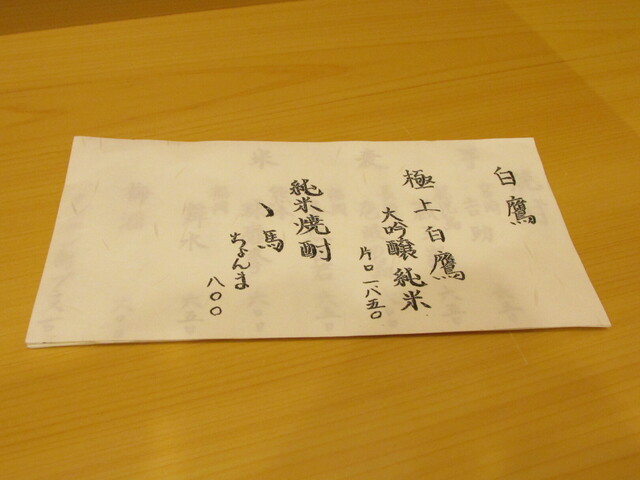 白鷹
極上白鷹
大吟醸純米
片口一八五〇
純米焼酎
ゝ馬
ちょんま
八〇〇